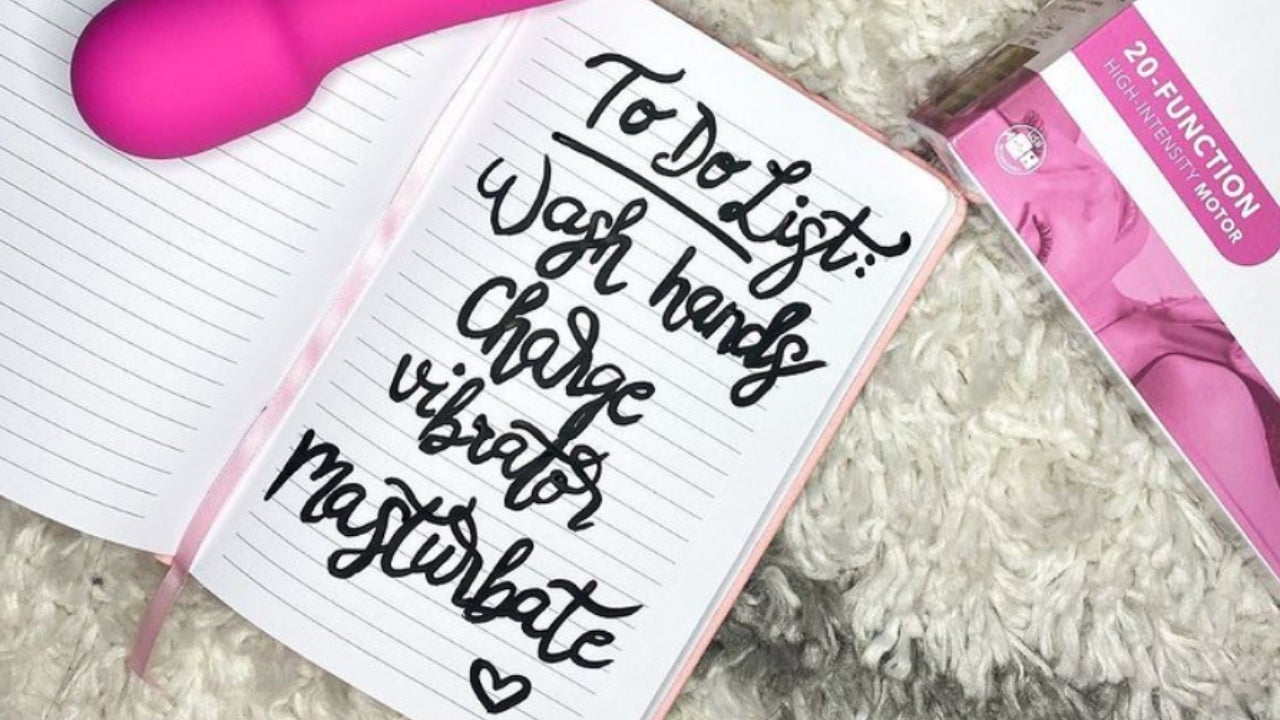 To Do List:
Wash hands
Charge
vibrator
Masturbate
20-FUNCTION
HIGH-INTENSITY MOTOR